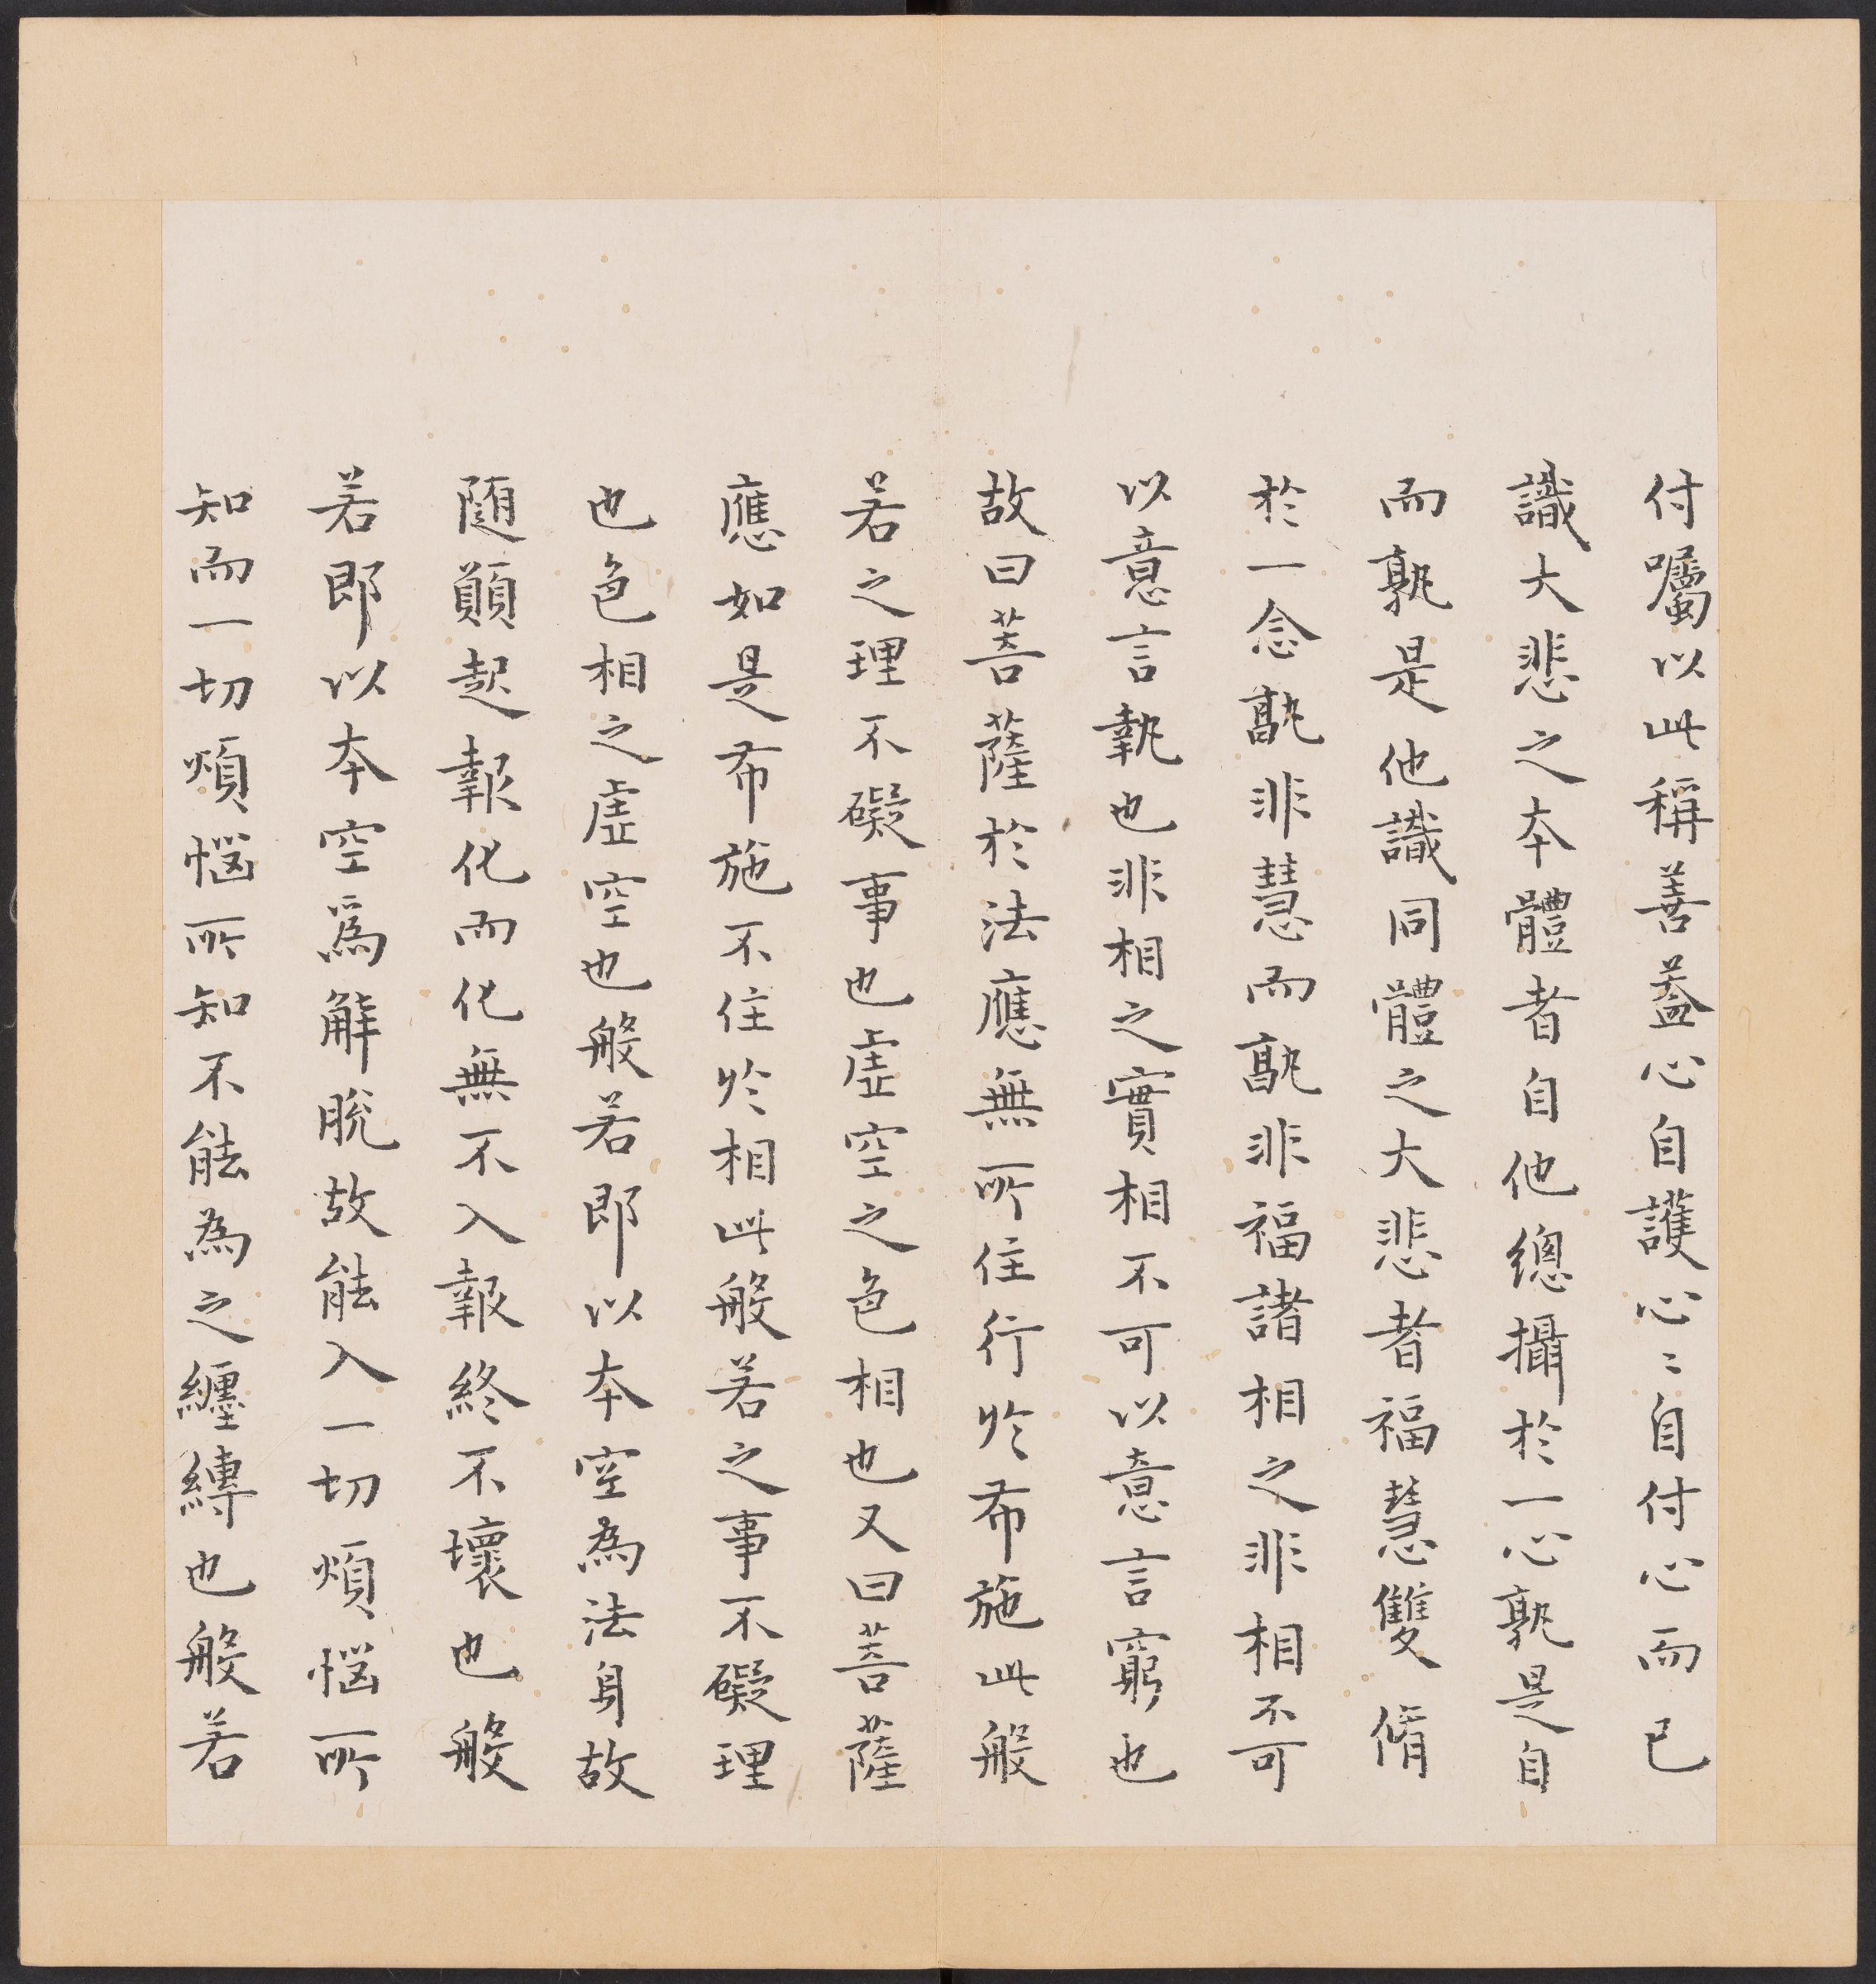 付囑以此稱善蓋心自護心〻自付心而已
識大悲之本體者自他總攝於一心孰是自
而孰是他識同體之大悲者福慧雙脩
於一念孰非慧而孰非福諸相之非相不可
以意言執也非相之實相不可以意言窮也
故曰菩薩於法應無所住行於布施此般
若之理不礙事也虛空之色相也又曰菩薩
應如是布施不住於相此般若之事不礙理
也色相之虛空也般若即以本空為法身故
隨願起報化而化無不入報終不壞也般
若即以本空為解脫故能入一切煩惱所
知而一切煩惱所知不能為之纏縛也般若